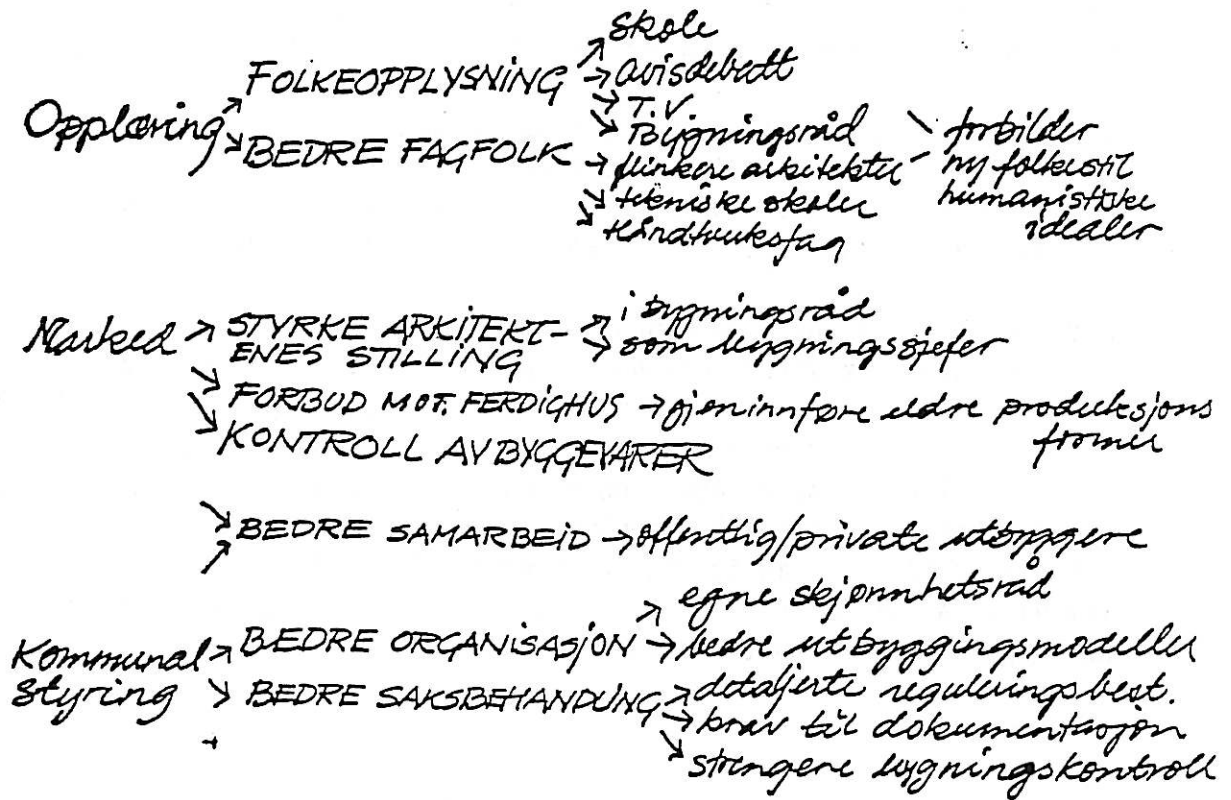 Opplæring
FOLKEOPPLYSNING
Skole
avisdebatt
T.V
BEDRE FAGFOLK
Bygningsråd
flinkere arkitekter
tekniske skoler
Håndtverksfag
forbilder
ny folkestil
humanistiske
idealer
Marked
STYRKE ARKITEKT-
ENES STILLING
i bygningsråd
som bygningssjefer
FORBUD MOT. FERDIGHUS
gjeninnføre eldre produksjons
former
KONTROLL AV BYGGEVARER
BEDRE SAMARBEID
offentlig/private utbyggere
Kommunal
Styring
BEDRE ORGANISASJON
egne skjønnhetsråd
bedre utbyggingsmodeller
BEDRE SAKSBEHANDLING
detaljerte reguleringsbest.
krav til dokumentasjon
strengere bygningskontroll